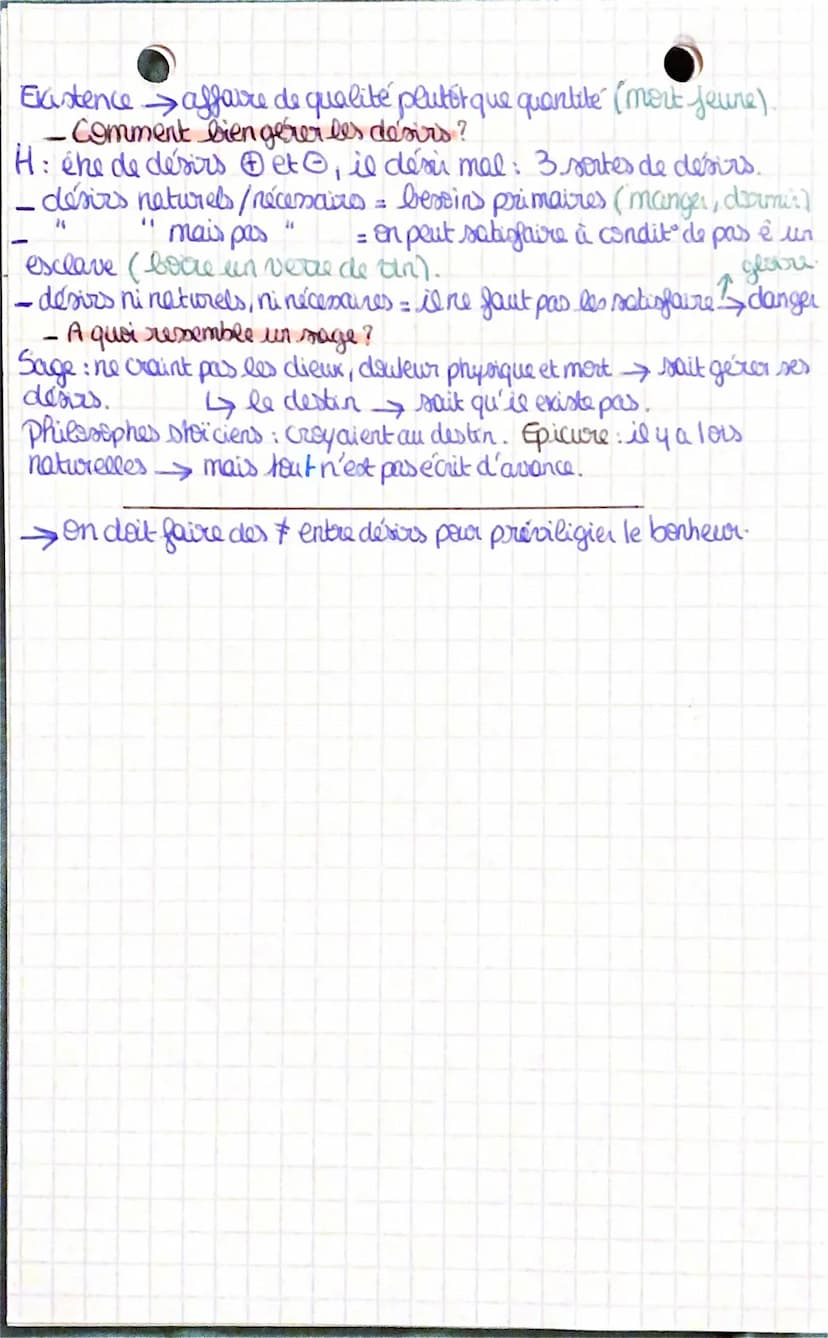 Existence → affaire de qualité plutôt que quantité (mort jeune)
- Comment bien gérer les désirs ?
H : être de désirs ⊕ et ⊖, il désir mal : 3 sortes de désirs.
- désirs naturels / nécessaires = besoins primaires (manger, dormir)
- " " mais pas " = on peut satisfaire à condit° de pas ê un
esclave (boire un verre de vin). gloire
- désirs ni naturels, ni nécessaires = il ne faut pas les satisfaire ! → danger
- A quoi ressemble un sage ?
Sage : ne craint pas les dieux, douleur physique et mort → sait gérer ses
désirs. ↳ le destin → sait qu'il existe pas.
Philosophes stoïciens : croyaient au destin. Epicure : il y a lois
naturelles → mais tout n'est pas écrit d'avance.
→ On doit faire des ≠ entre désirs pour préviligier le bonheur.